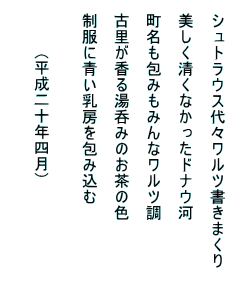 シュトラウス代々ワルツ書きまくり
美しく清くなかったドナウ河
町名も包みもみんなワルツ調
古里が香る湯呑みのお茶の色
制服に青い乳房を包み込む
（平成二十年四月）